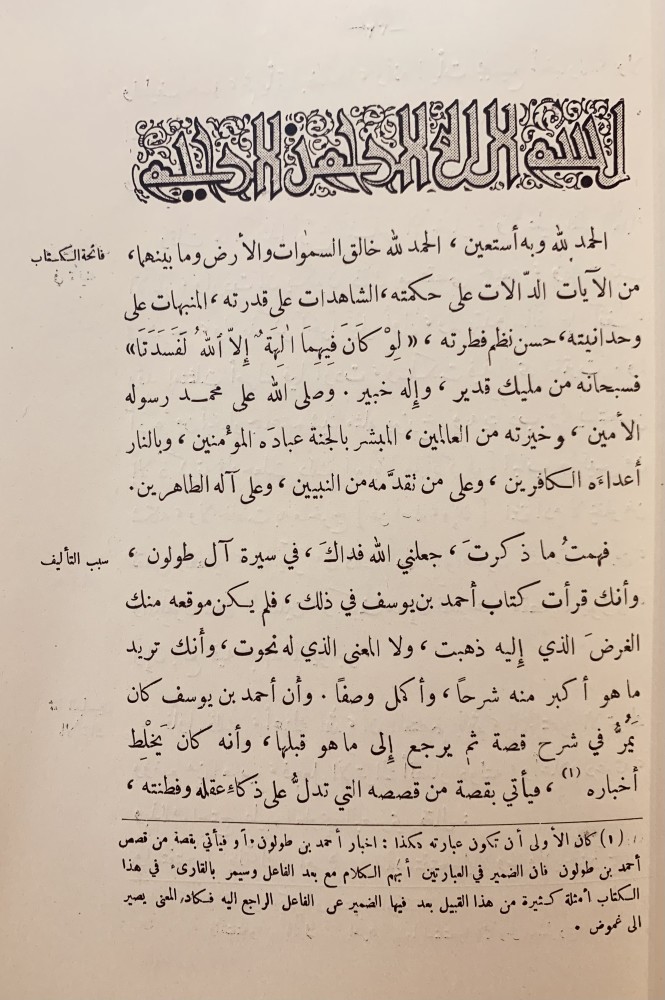 بسم الله الرحمن الرحيم
الحمد لله وبه أستعين ، الحمد لله خالق السمٰوات والأرض وما بينهما،
فاتحة الكتاب
من الآيات الدّالات على حكمته، الشاهدات على قدرته ، المنبهات على
وحدانيته، حسن نظم فطرته ، «لَوْ كَانَ فِيهِمَا اٰلِهَةٌ إِلاَّ اللهُ لَفَسَدَتَا»
فسبحانه من مليك قدير ، وإلٰه خبير . وصلى الله على محمـد رسوله
الأمين ، وخيرته من العالمين ، المبشر بالجنة عبادَه المؤمنين ، وبالنار
أعداءَه الكافرين ، وعلى من تقدَّمه من النبيين ، وعلى آله الطاهرين.
فهمتُ ما ذكرتَ ، جعلني الله فداكَ ، في سيرة آل طولون ،
سبب التأليف
وأنك قرأت كتاب أحمد بن يوسف في ذلك ، فلم يكن موقعه منك
الغرضَ الذي إليه ذهبت ، ولا المعنى الذي له نحوت ، وأنك تريد
ما هو أكبر منه شرحًا ، وأكمل وصفًا . وأن أحمد بن يوسف كان
يَمُرُّ في شرح قصة ثم يرجع إلى ما هو قبلها، وأنه كان يَخْلِط
أخباره (١) ، فيأتي بقصة من قصصه التي تدلُّ على ذكاءِ عقله وفطنته ،
(١) كان الأولى أن تكون عبارته هكذا : اخبار أحمد بن طولون، أو فيأتي بقصة من قصص
أحمد بن طولون فان الضمير في العبارتين أبهم الكلام مع بعد الفاعل وسيمر بالقارىء في هذا
الكتاب أمثلة كثيرة من هذا القبيل بعد فيها الضمير عن الفاعل الراجع اليه فكاد المعنى يصير
الى غموض .